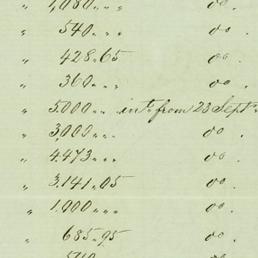 " 1,080 " " do .
" 540 " " do .
" 428.65 do .
" 360 " " do .
" 5.000 " " int. from 23 Sept.
" 3,000 " " do .
" 4.473 " " do .
" 3.141.05 do .
" 1.000 " " do .
" 685.95 do .
540 " " do .